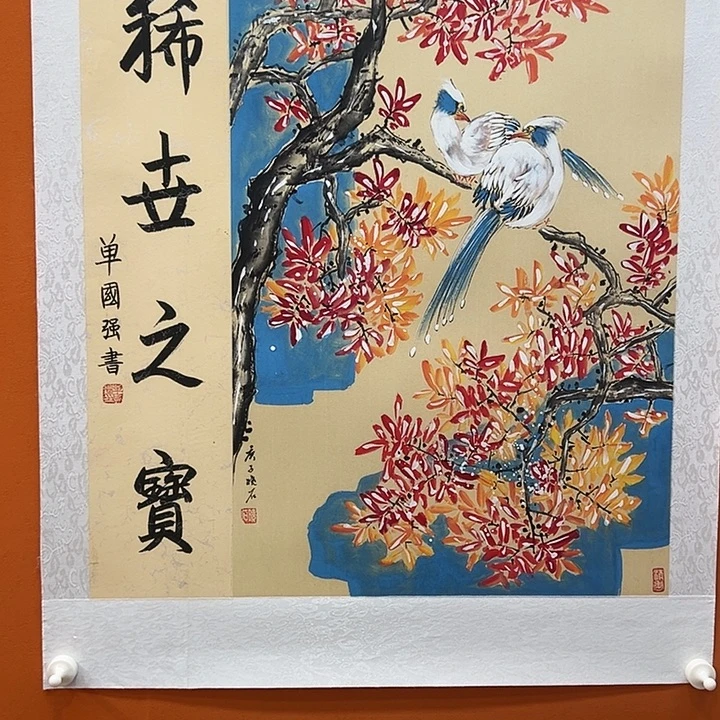 稀世之寶
單國强書
庚子曉石